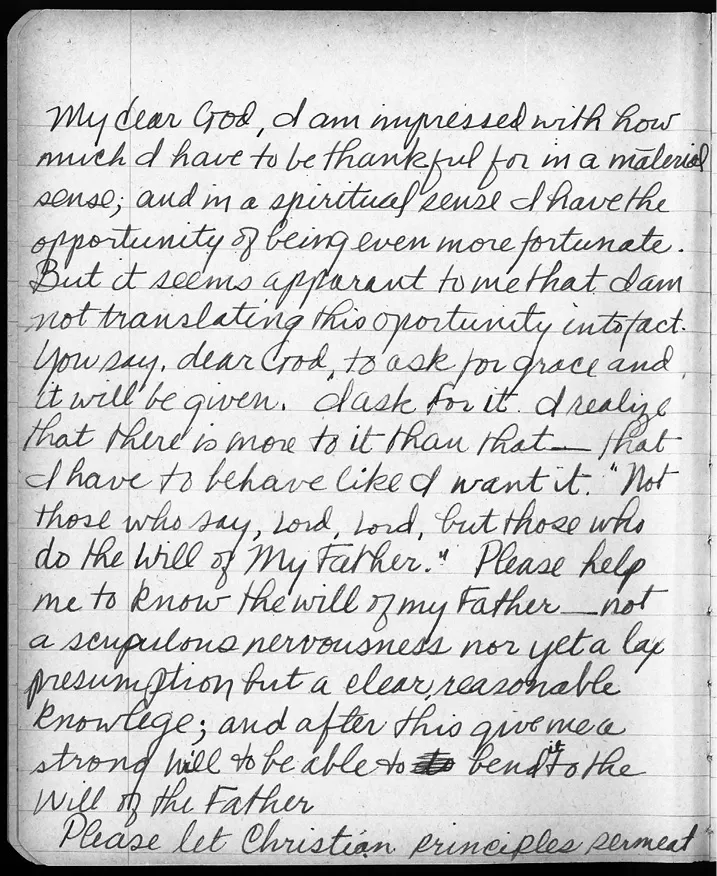 My dear God, I am impressed with how
much I have to be thankful for in a material
sense; and in a spiritual sense I have the
opportunity of being even more fortunate.
But it seems apparant to me that I am
not translating this oportunity into fact.
You say, dear God, to ask for grace and
it will be given. I ask for it. I realize
that there is more to it than that— that
I have to behave like I want it. "Not
those who say, Lord, Lord, but those who
do the Will of My Father." Please help
me to know the will of my Father—not
a scupulous nervousness nor yet a lax
presumption but a clear, reasonable
knowlege; and after this give me a
strong Will to be able to bend it to the
Will of the Father
Please let Christian principles permeat